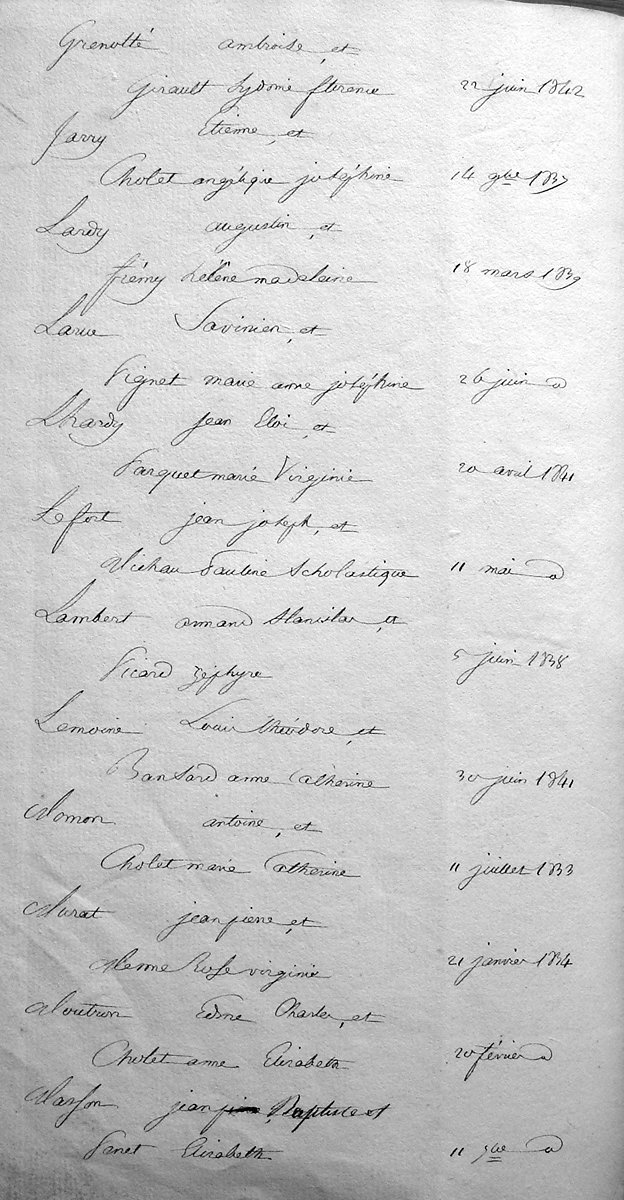 Grenotté ambroise, et
Girault Sydonie florence 22 juin 1842
Jarry Etienne, et
Cholet angélique joséphine 14 9bre 1837
Lardy augustin, et
frémy hélène madeleine 18 mars 1839
Larue Savinien, et
Pignet marie anne joséphine 26 juin d
Lhardy jean Eloi, et
Parquet marie Virginie 20 avril 1841
Lefort jean joseph, et
Michau Pauline Scholastique 11 mai d
Lambert armand Stanislas, et
Picard zéphyre 5 juin 1838
Lemoine Louis théodore, et
Bansard anne Catherine 30 juin 1841
Momon antoine, et
Cholet marie Catherine 11 juillet 1833
Murat jean pierre, et
Menne Rose virginie 21 janvier 1834
Moutron Edme Charles, et
Cholet anne Elizabeth 20 février d
Masson jean Baptiste et
Panet Elizabeth 11 9bre d